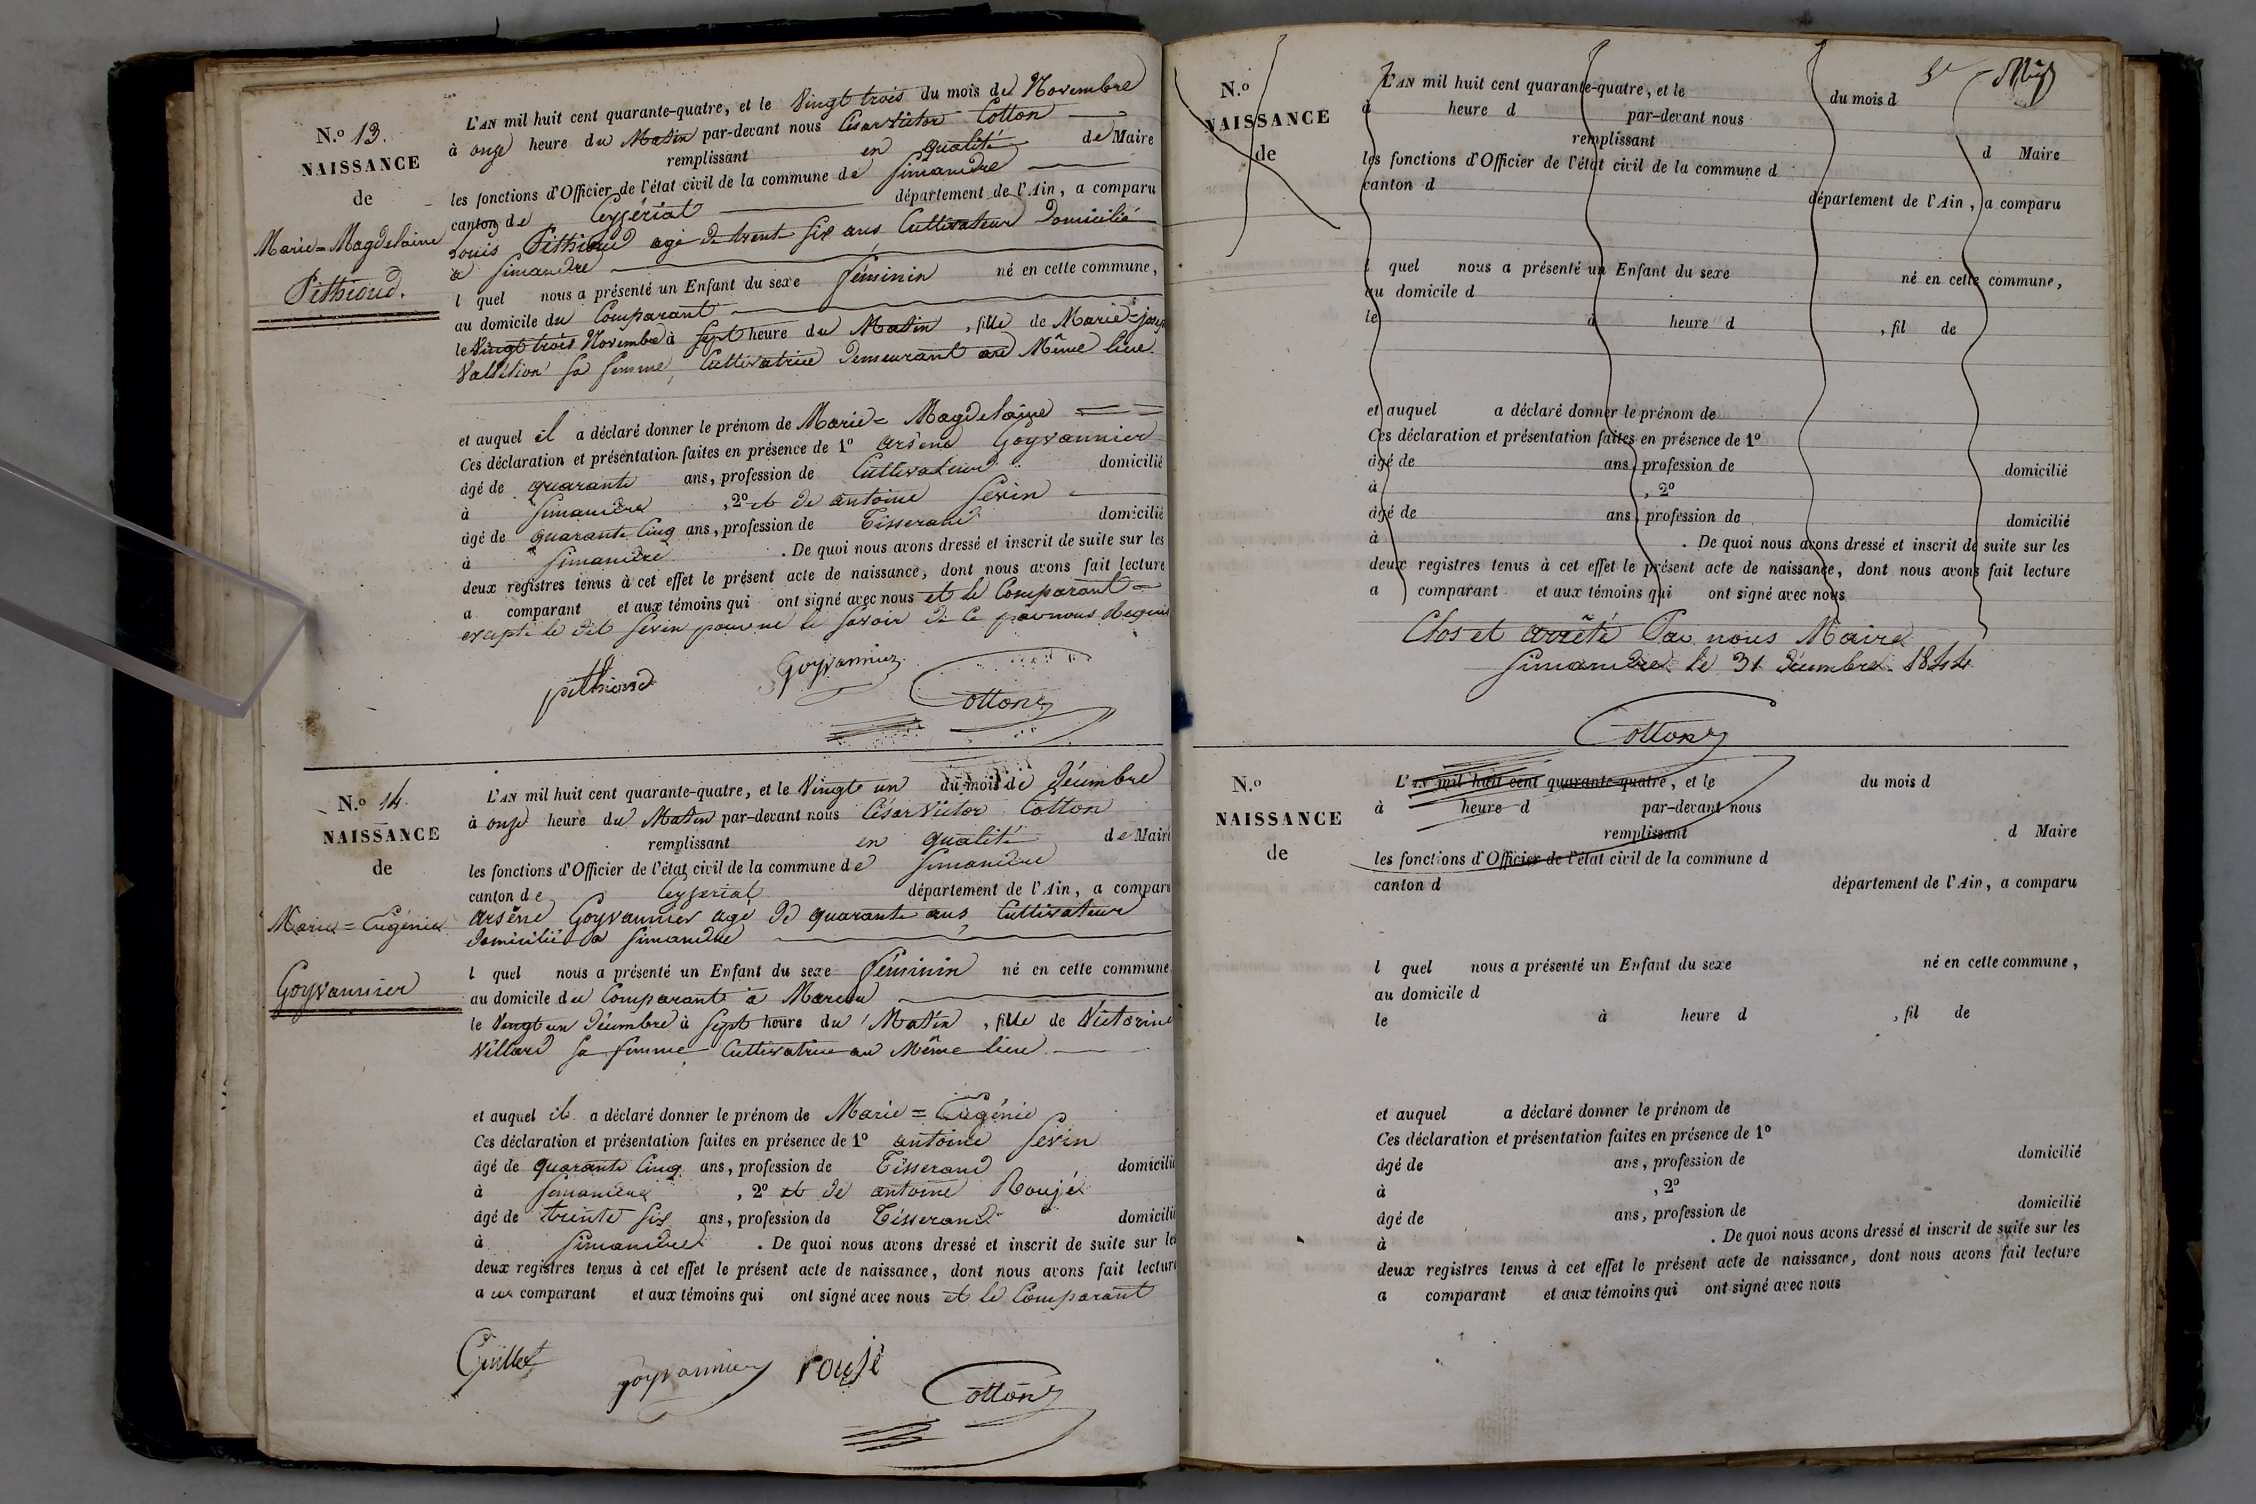 N.º 13.
NAISSANCE
de
Marie=Magdelaine
Pithioud.
L'AN mil huit cent quarante-quatre, et le Vingt trois du mois de Novembre
à onze heure du Matin par-devant nous César Victor Cotton
remplissant en qualité de Maire
les fonctions d'Officier de l'état civil de la commune de Simandre
canton de Ceyzériat département de l'Ain, a comparu
Louis Pithioud agé de trent six ans Cultivateur Domicilié
à Simandre
l quel nous a présenté un Enfant du sexe féminin né en cette commune,
au domicile du Comparant
le Vingt trois Novembre à sept heure du Matin, fille de Marie=
sa femme, Cultivatrice Demeurant au Même lieu.
et auquel il a déclaré donner le prénom de Marie=Magdelaine
Ces déclaration et présentation faites en présence de 1º arsène Goyvannier
âgé de quarante ans, profession de Cultivateur domicilié
à Simandre, 2º et de antoine Sevin
âgé de quarante Cinq ans, profession de Tisserand domicilié
à Simandre. De quoi nous avons dressé et inscrit de suite sur les
deux registres tenus à cet effet le présent acte de naissance, dont nous avons fait lecture
a comparant et aux témoins qui ont signé avec nous et le Comparant
excepté le dit Sevin pour ne le savoir de ce par nous Requis
pithioud
Goyvannier
Cotton
N.º 14.
NAISSANCE
de
Marie=Eugénie
Goyvannier
L'AN mil huit cent quarante-quatre, et le Vingt un du mois de Décembre
à onze heure du Matin par-devant nous César Victor Cotton
remplissant en qualité de Maire
les fonctions d'Officier de l'état civil de la commune de Simandre
canton de Ceyzeriat département de l'Ain, a comparu
arsène Goyvannier agé de quarante ans Cultivateur
domicilié à Simandre
l quel nous a présenté un Enfant du sexe Féminin né en cette commune,
au domicile du Comparant à
le Vingt un Décembre à sept heure du Matin, fille de Victorine
Villard sa femme Cultivatrice au Même lieu
et auquel il a déclaré donner le prénom de Marie=Eugénie
Ces déclaration et présentation faites en présence de 1º antoine Sevin
âgé de quarante Cinq ans, profession de Tisserand domicilié
à Simandre, 2º et de antoine Roujé
âgé de trente six ans, profession de Tisserand domicilié
à Simandre. De quoi nous avons dressé et inscrit de suite sur les
deux registres tenus à cet effet le présent acte de naissance, dont nous avons fait lecture
a comparant et aux témoins qui ont signé avec nous et le Comparant
goyvannier
roujé
Cotton
N.º
NAISSANCE
de
L'AN mil huit cent quarante-quatre, et le du mois d
à heure d par-devant nous
remplissant d Maire
les fonctions d'Officier de l'état civil de la commune d
canton d département de l'Ain, a comparu
l quel nous a présenté un Enfant du sexe né en cette commune,
au domicile d
le à heure d, fil de
et auquel a déclaré donner le prénom de
Ces déclaration et présentation faites en présence de 1º
âgé de ans, profession de domicilié
à, 2º
âgé de ans, profession de domicilié
à. De quoi nous avons dressé et inscrit de suite sur les
deux registres tenus à cet effet le présent acte de naissance, dont nous avons fait lecture
a comparant et aux témoins qui ont signé avec nous
Clos et arrêté Par nous Maire
Simandre le 31 Décembre 1844
Cotton
N.º
NAISSANCE
de
L'AN mil huit cent quarante-quatre, et le du mois d
à heure d par-devant nous
remplissant d Maire
les fonctions d'Officier de l'état civil de la commune d
canton d département de l'Ain, a comparu
l quel nous a présenté un Enfant du sexe né en cette commune,
au domicile d
le à heure d, fil de
et auquel a déclaré donner le prénom de
Ces déclaration et présentation faites en présence de 1º
âgé de ans, profession de domicilié
à, 2º
âgé de ans, profession de domicilié
à. De quoi nous avons dressé et inscrit de suite sur les
deux registres tenus à cet effet le présent acte de naissance, dont nous avons fait lecture
a comparant et aux témoins qui ont signé avec nous